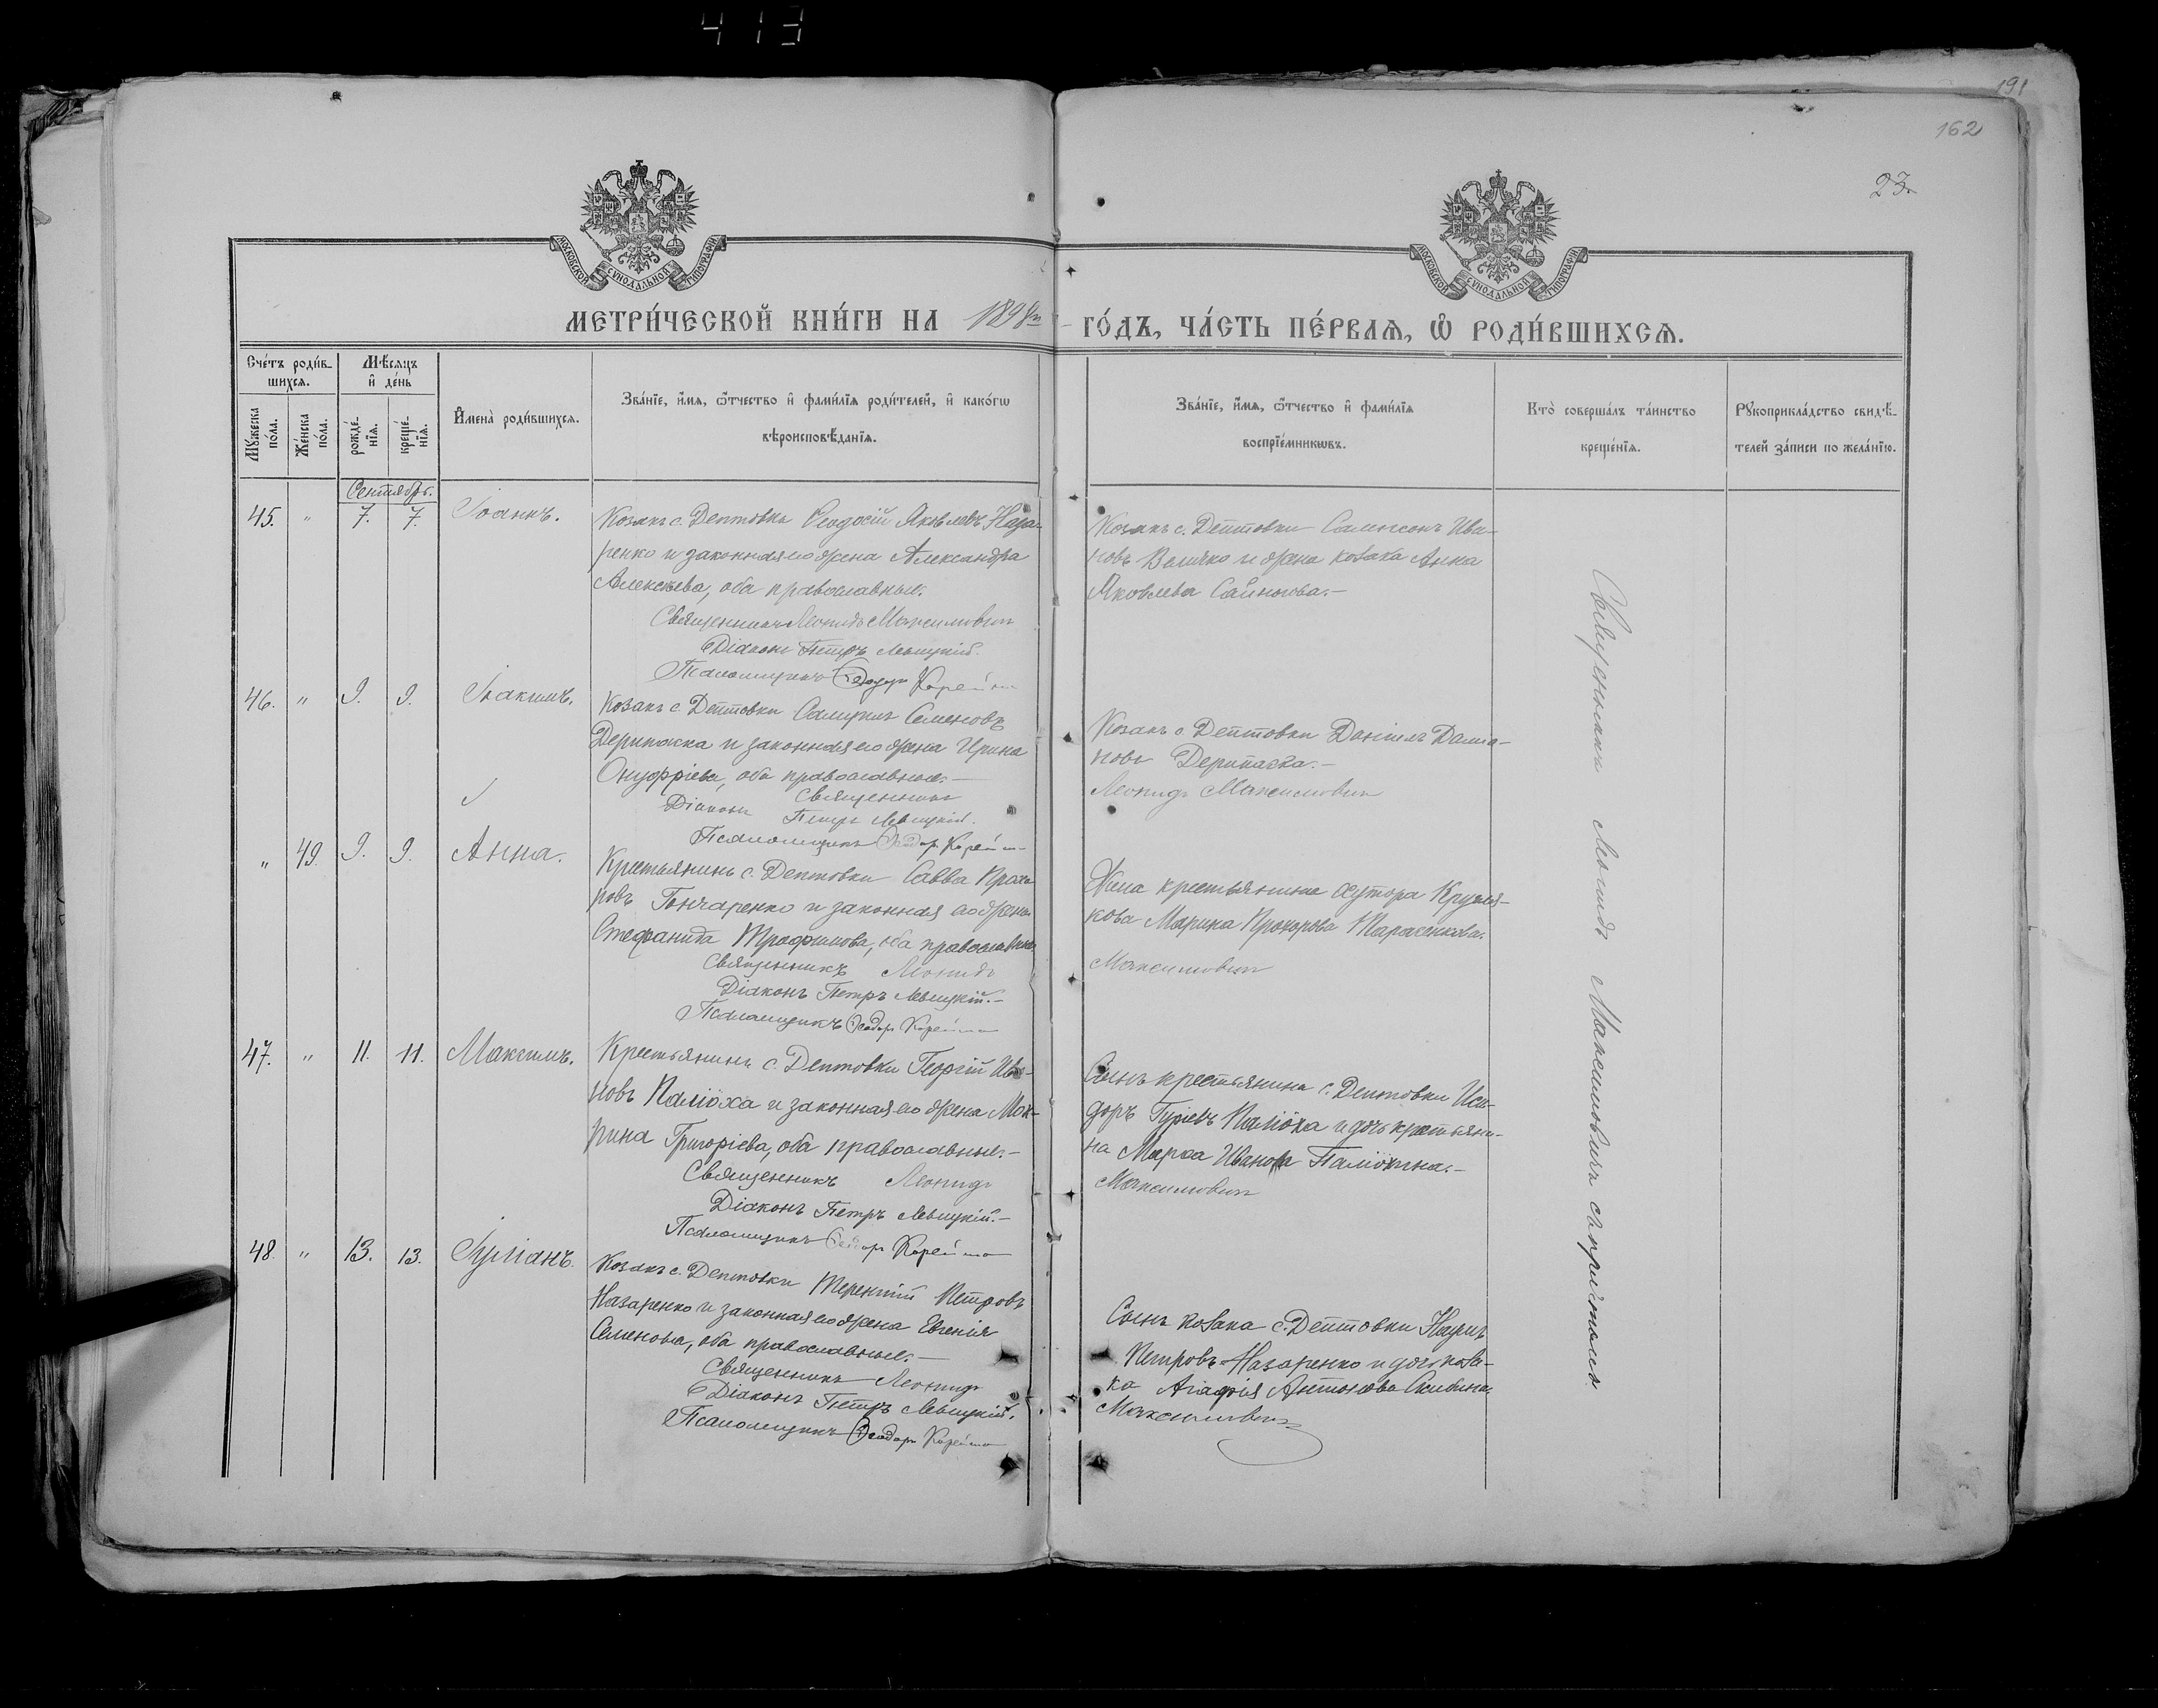 413
191
162
23.
МОСКОВСКОЙ СѴНОДАЛЬНОЙ ТИПОГРАФІИ
МОСКОВСКОЙ СѴНОДАЛЬНОЙ ТИПОГРАФІИ
МЕТРИ́ЧЕСКОЙ КНИ́ГИ НА 1898й ГО́ДЪ, ЧА́СТЬ ПЕ́РВАѦ, Ѿ РОДИ́ВШИХСѦ.
Сче́тъ роди́в-
шихсѧ.
Мѣ́сѧцъ
и҆ де́нь
Мꙋ́жеска по́ла.
Же́нска по́ла.
рожде́-
нїѧ.
креще́-
нїѧ.
И҆мена̀ роди́вшихсѧ.
Зва́нїе, и҆́мѧ, ѻ҆́тчество и҆ фами́лїѧ роди́телей, и҆ како́гѡ
вѣроисповѣ́данїѧ.
Зва́нїе, и҆́мѧ, ѻ҆́тчество и҆ фами́лїѧ
воспрїе́мникѡвъ.
Кто̀ соверша́лъ та́инство
креще́нїѧ.
Рꙋкоприкла́дство свидѣ́-
телей за́писи по жела́нїю.
Сентябрь.
45. " 7. 7. Іоаннъ.
Козакъ с. Дептовки Ѳеодосій Яковлевъ Наза-
ренко и законная его жена Александра
Алексѣева, оба православные.
Священникъ Леонидъ Максимовичъ
Діаконъ Петръ Левицкій.
Псаломщикъ Ѳеодоръ
Козакъ с. Дептовки Сампсонъ Ива-
новъ Величко и жена козака Анна
Яковлева
46. " 9. 9. Іоакимъ.
Козакъ с. Дептовки Самуилъ Семеновъ
Дерипаска и законная его жена Ирина
Онуфріева, оба православные.
Священникъ
Діаконъ Петръ Левицкій.
Псаломщикъ Ѳеодоръ
Козакъ с. Дептовки Даніилъ Даміа-
новъ Дерипаска.
Леонидъ Максимовичъ
" 49. 9. 9. Анна.
Крестьянинъ с. Дептовки Савва
Гончаренко и законная его жена
Стефанида Трофимова, оба православные
Священникъ Леонидъ
Діаконъ Петръ Левицкій.
Псаломщикъ Ѳеодоръ
Жена крестьянина хутора
Марина Прохорова
Максимовичъ
47. " 11. 11. Максимъ.
Крестьянинъ с. Дептовки Георгій Ива-
новъ Паліоха и законная его жена Мак-
рина Григоріева, оба православные.
Священникъ Леонидъ
Діаконъ Петръ Левицкій.
Псаломщикъ Ѳеодоръ
Сынъ крестьянина с. Дептовки Иси-
доръ Гуріевъ Паліоха и дочь крестьяни-
на Марѳа Иванова Паліохина.
Максимовичъ
48. " 13. 13. Іуліанъ.
Козакъ с. Дептовки Терентій Петровъ
Назаренко и законная его жена Евгенія
Семенова, оба православные.
Священникъ Леонидъ
Діаконъ Петръ Левицкій.
Псаломщикъ Ѳеодоръ
Сынъ козака с. Дептовки Наумъ
Петровъ Назаренко и дочь коза-
ка Агафія Антонова
Максимовичъ
Священникъ Леонидъ Максимовичъ